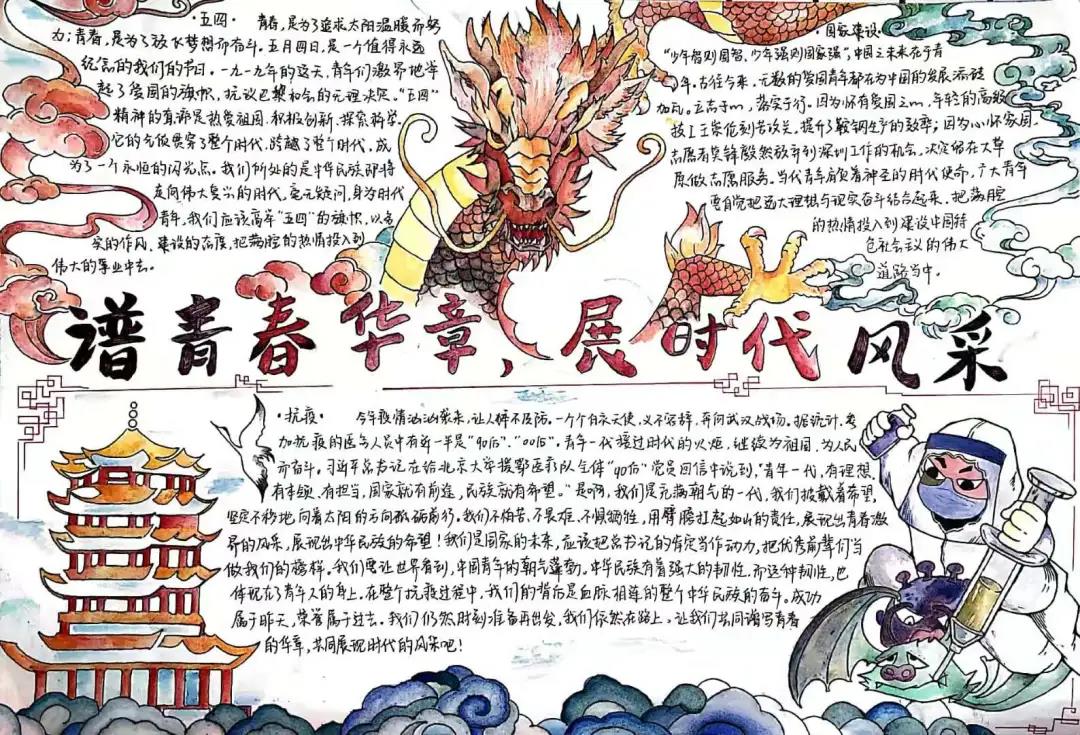 ·五四· 青春，是为了追求太阳温暖而努
力；青春，是为了放飞梦想而奋斗。五月四日，是一个值得永远
纪念的我们的节日。一九一九年的这天，青年们激昂地举
起了爱国的旗帜，抗议巴黎和会的无理决定。"五四"
精神的真谛是热爱祖国、积极创新、探索科学。
它的光彼贯穿了整个时代，跨越了整个时代，成
为了一个永恒的闪光点。我们所处的是中华民族即将
走向伟大复兴的时代，毫无疑问，身为时代
青年，我们应该高举"五四"的旗帜，以务
实的作风、建设的态度，把满腔的热情投入到
伟大的事业中去。
·国家建设·
"少年智则国智，少年强则国家强"，中国之未来在于青
年，古往今来，无数的爱国青年都在为中国的发展添砖
加瓦。立志于m，落实于行。因为怀有爱国之m，年轻的高级
技工王崇伦刻苦攻关，提升了鞍钢生产的效率；因为心怀家园，
志愿者吴锋毅然放弃到深圳工作的机会，决定留在大草
原做志愿服务。当代青年肩负着神圣的时代使命，广大青年
要自觉把远大理想与现实奋斗结合起来，把满腔
的热情投入到建设中国特
色社会主义的伟大
道路当中。
谱青春华章、展时代风采
·抗疫· 今年疫情汹汹袭来，让人猝不及防。一个个白衣天使，义不容辞，奔向武汉战场。据统计，参
加抗疫的医务人员中有近一半是"90后"、"00后"，青年一代接过时代的火炬，继续为祖国、为人民
而奋斗。习近平总书记在给北京大学援鄂医疗队全体"90后"党员回信中说到，"青年一代，有理想、
有本领、有担当，国家就有前途，民族就有希望。"是啊，我们是充满朝气的一代，我们披戴着希望，
坚定不移地向着太阳的方向砥砺前行。我们不怕苦、不畏难、不惧牺牲，用臂膀扛起如山的责任，展现出青春激
昂的风采，展现出中华民族的希望！我们是国家的未来，应该把总书记的肯定当作动力，把优秀前辈们当
做我们的榜样。我们要让世界看到，中国青年的朝气蓬勃。中华民族有着强大的韧性，而这种韧性，也
体现在了青年人的身上。在整个抗疫过程中，我们的背后是血脉相连的整个中华民族的奋斗。成功
属于昨天，荣誉属于过去。我们仍然时刻准备再出发，我们依然在路上，让我们共同谱写青春
的华章，共同展现时代的风采吧！